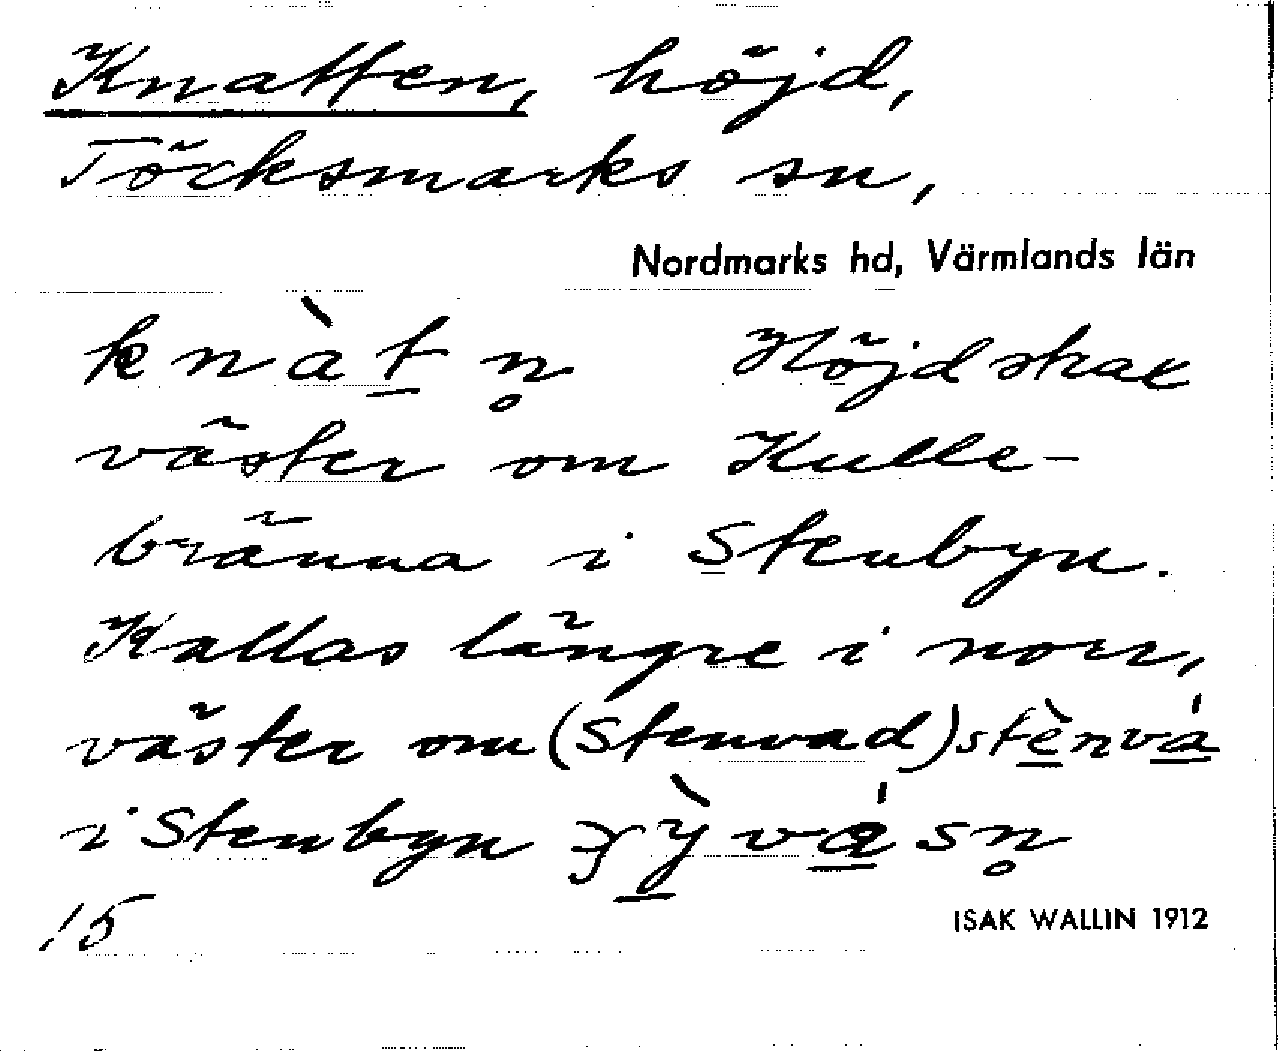 Knatten, höjd,
Töcksmarks sn,
Nordmarks hd, Värmlands län
knàt̲n̥ Höjdstrax
väster om Kulle-
bränna i Stenbyn.
Kallas längre i norr,
väster om (Stenvad) stè̲nvá̲
i Stenbyn ỳ̲vá̲sn̥
15
ISAK WALLIN 1912